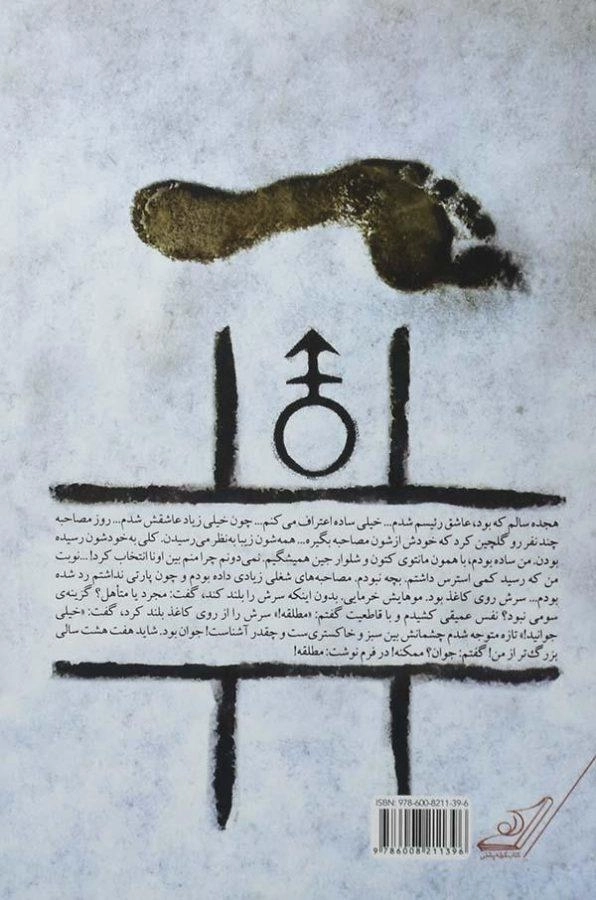 هجده سالم که بود، عاشق رئیسم شدم... خیلی ساده اعتراف می‌کنم... چون خیلی زیاد عاشقش شدم... روز مصاحبه
چند نفر رو گلچین کرد که خودش ازشون مصاحبه بگیره... همه‌شون زیبا به‌نظر می‌رسیدن. کلی به‌خودشون رسیده
بودن. من ساده بودم، با همون مانتوی کتون و شلوار جین همیشگیم. نمی‌دونم چرا منم بین اونا انتخاب کرد!... نوبت
من که رسید کمی استرس داشتم. بچه نبودم. مصاحبه‌های شغلی زیادی داده بودم و چون پارتی نداشتم رد شده
بودم... سرش روی کاغذ بود. موهایش خرمایی. بدون اینکه سرش را بلند کند، گفت: مجرد یا متأهل؟ گزینه‌ی
سومی نبود؟ نفس عمیقی کشیدم و با قاطعیت گفتم: «مطلقه!» سرش را از روی کاغذ بلند کرد، گفت: «خیلی
جوانید!» تازه متوجه شدم چشمانش بین سبز و خاکستری‌ست و چقدر آشناست! جوان بود. شاید هفت هشت سالی
بزرگ‌تر از من! گفتم: جوان؟ ممکنه! در فرم نوشت: مطلقه!
ISBN: 978-600-8211-39-6
9 786008 211396
کتاب کوله‌پشتی